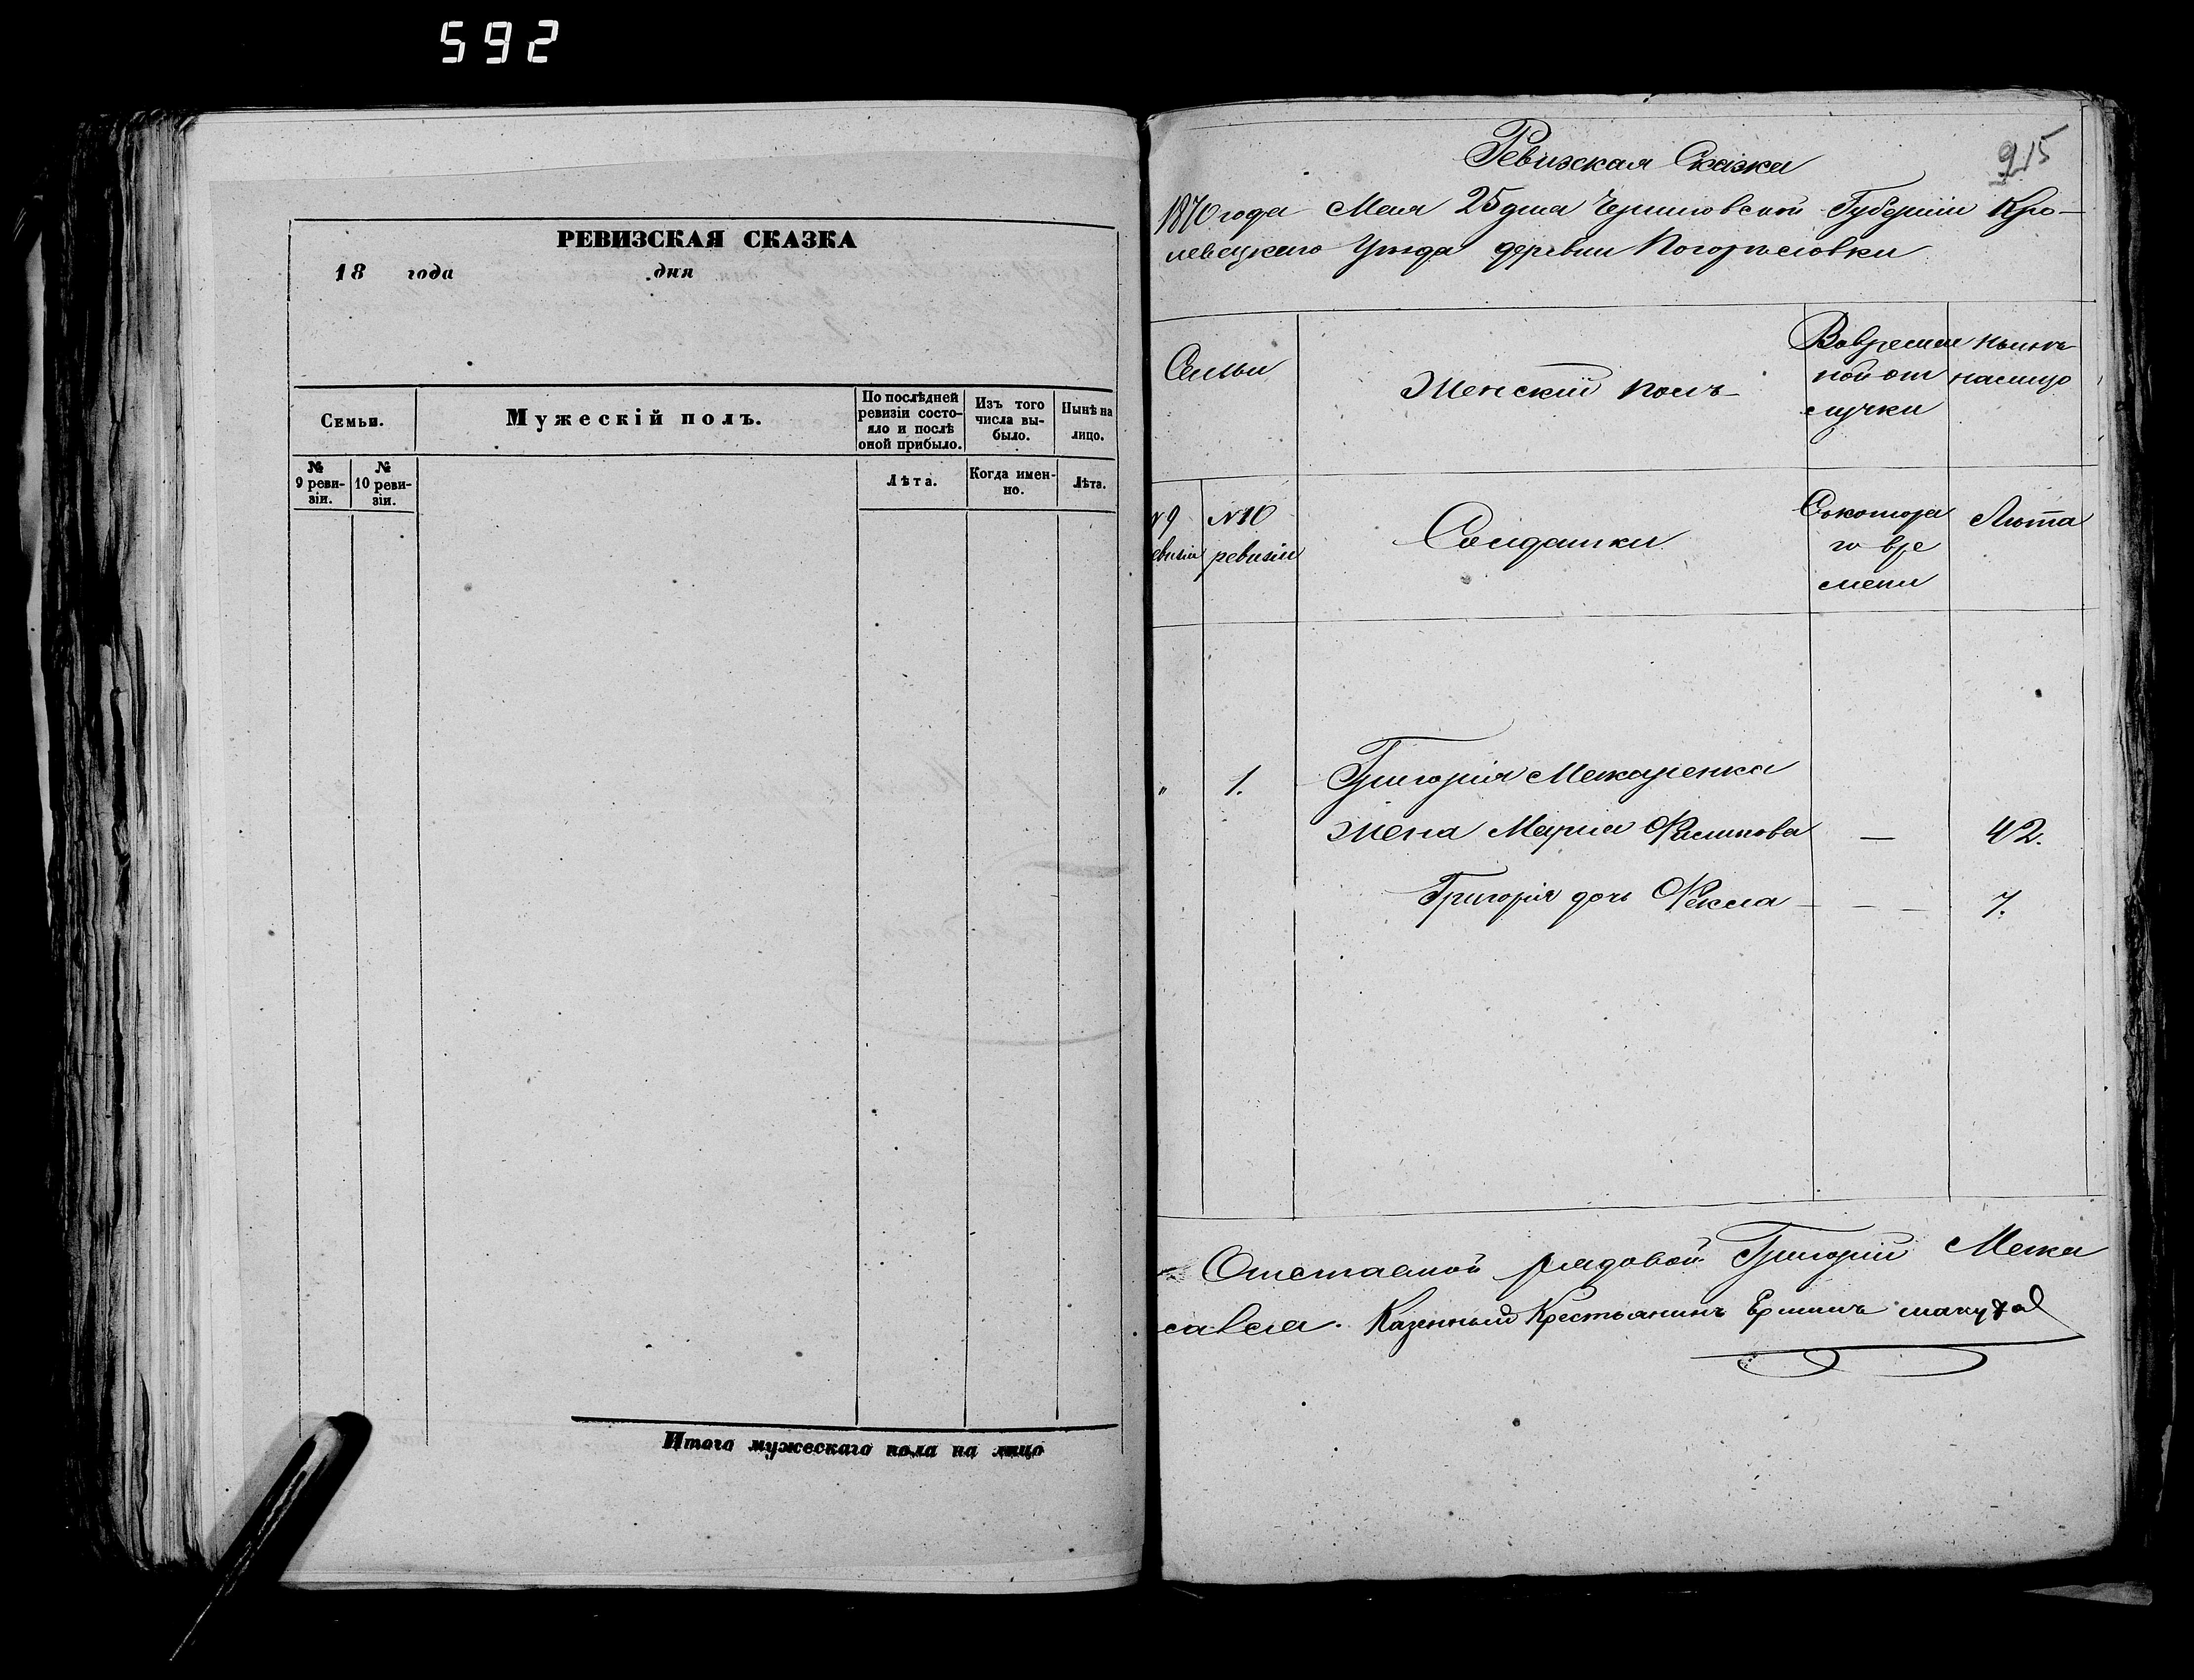 592
РЕВИЗСКАЯ СКАЗКА
18 года дня
Семьи.
Мужескій полъ.
По послѣдней ревизіи состо-
яло и послѣ
оной прибыло.
Изъ того
числа вы-
было.
Нынѣ на
лицо.
№
9 реви-
зіи.
№
10 реви-
зіи.
Лѣта.
Когда имен-
но.
Лѣта.
Итого мужескаго пола на лицо
Ревизская Сказка
915
года Мая 25 дня Черниговской Губерніи Кро-
левецкаго Уѣзда деревни Погорѣловки
Семьи
Женскій полъ
Вовремен
ной от
лучки
Нынѣ
налицо
№ 9
ревизіи
№ 10
ревизіи
Солдатки
Съ котора
го вре
мени
Лѣта
" 1. Григорія
жена Марія Филипова — 42.
Григорія дочь Фекла — — — 7.
рядовой Григорій
Казенный Крестьянинъ